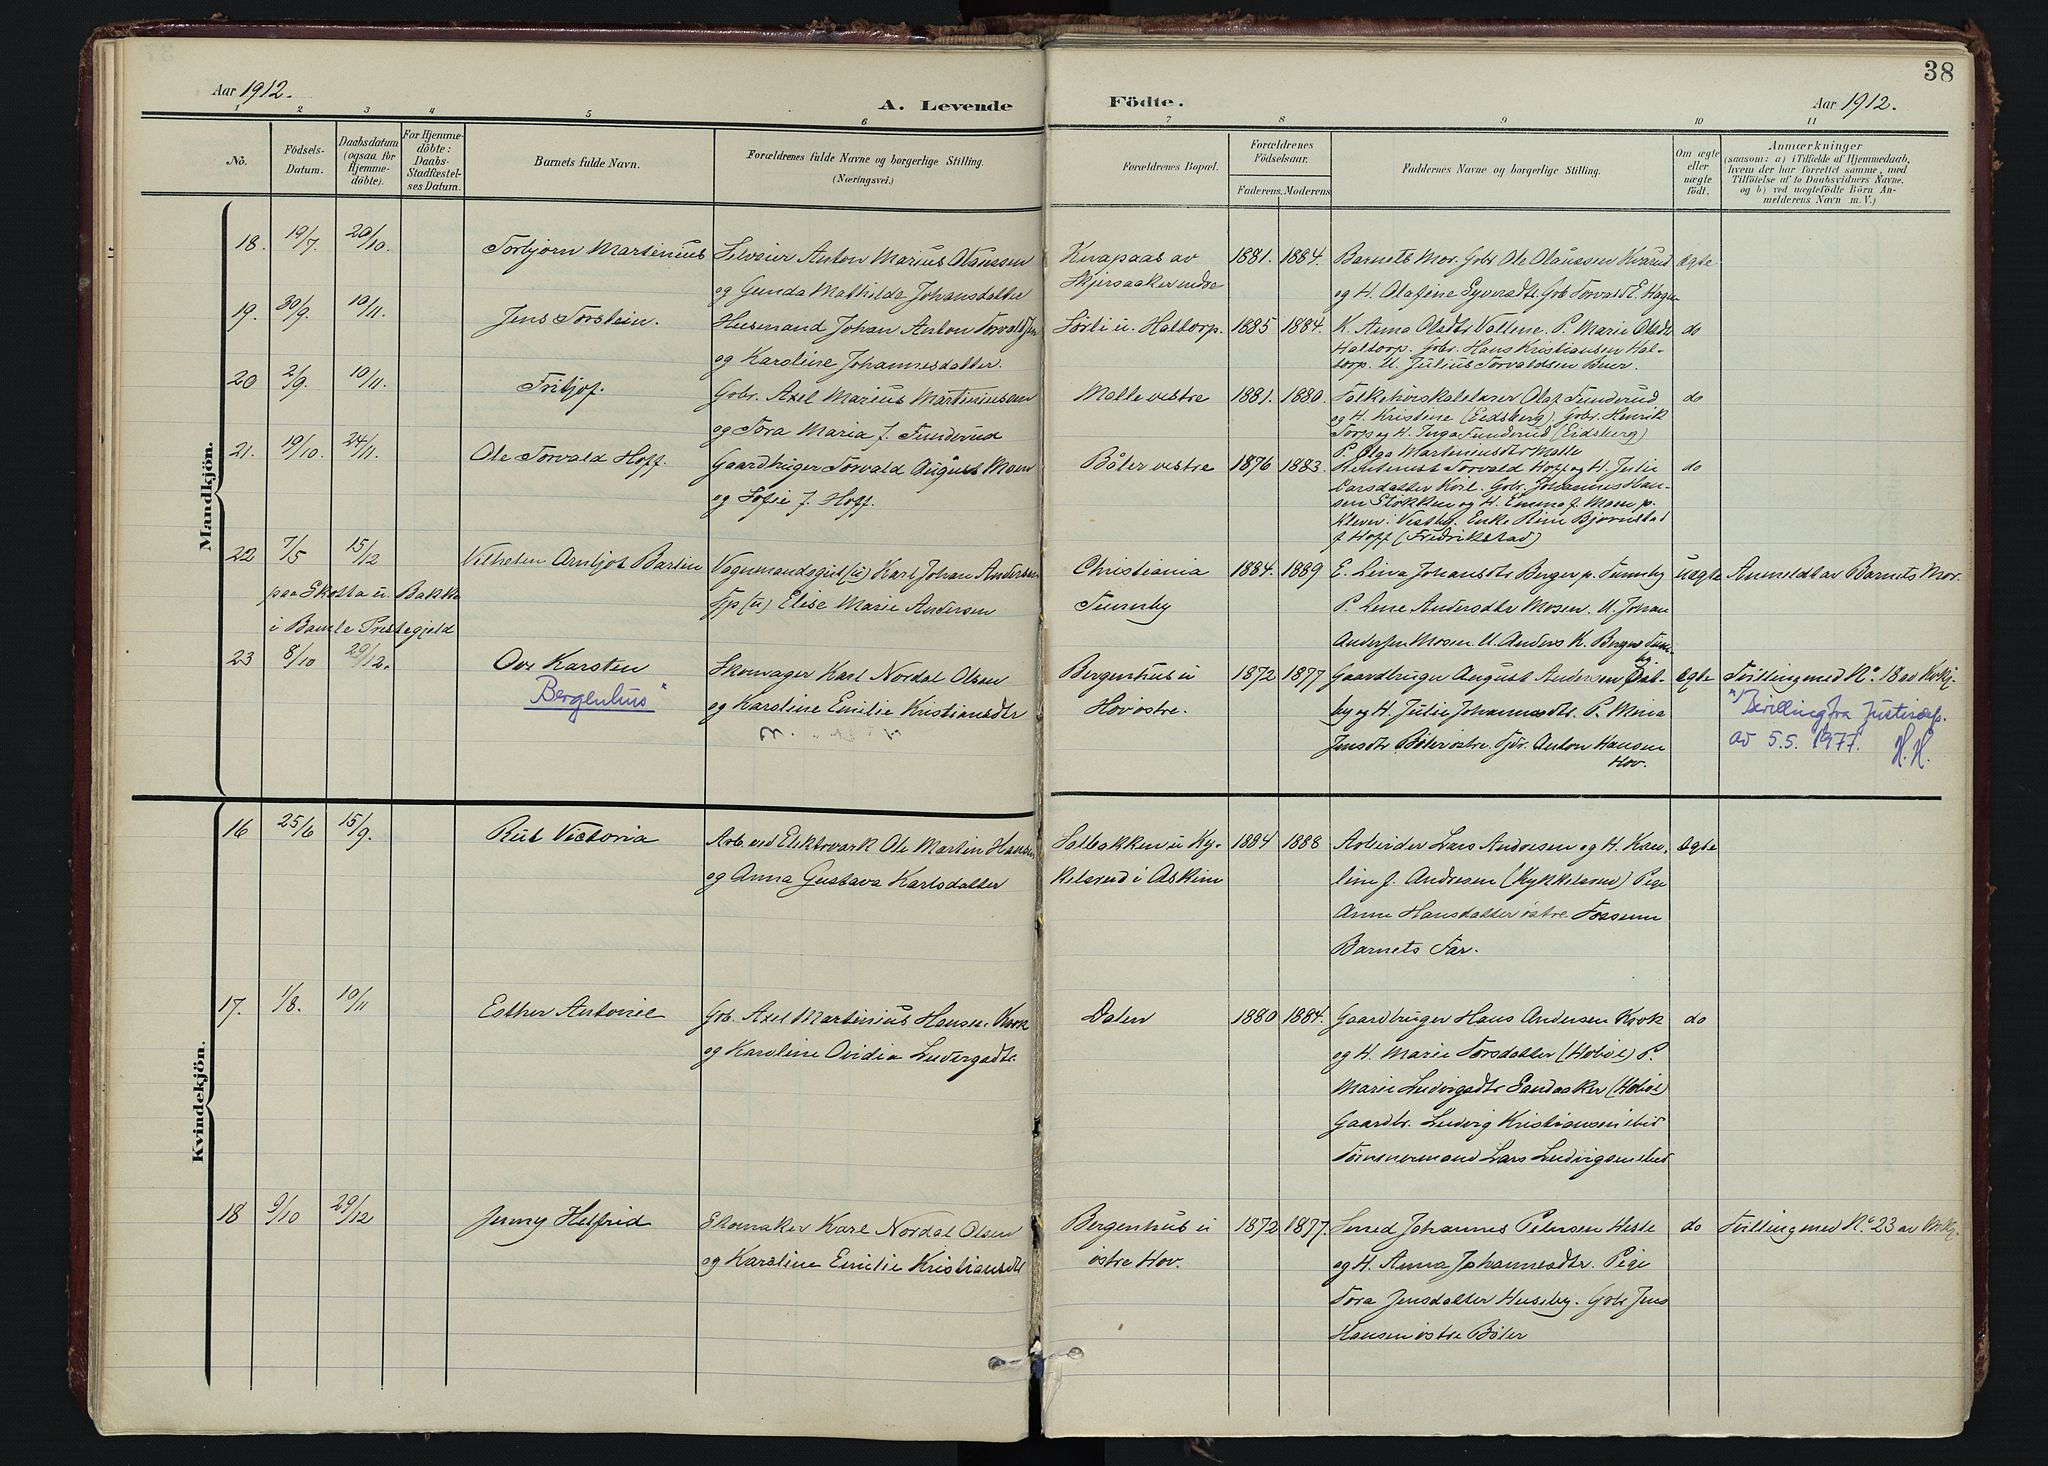 38
Aar 1912.
A. Levende Födte.
Aar 1912.
1 2 3 4 5 6 7 8 9 10 11
No.
Födsels-
Datum.
Daabsdatum
(ogsaa for
Hjemme-
döbte).
For Hjemme-
döbte:
Daabs-
Stadfæstel-
ses Datum.
Barnets fulde Navn.
Forældrenes fulde Navne og borgerlige Stilling.
(Næringsvei.)
Forældrenes Bopæl.
Forældrenes
Födselsaar.
Faderens. Moderens.
Faddernes Navne og borgerlige Stilling.
Om ægte
eller
uægte
födt.
Anmærkninger
(saasom: a) i Tilfælde af Hjemmedaab,
hvem der har forrettet samme, med
Tilföielse af to Daabsvidners Navne.
og b) ved uægtefödte Börn An-
melderens Navn m. V.)
Mandkjön.
18. 19/7. 20/10. Torbjørn Martinius
Anton Marius Olaussen
og Gunda Mathilde Johansdatter
Knapaas av
1881. 1884.
Barnets Mor. Gbr Ole Olaussen
og H. Olafine
ægte
19. 30/9. 10/11. Jens Torstein.
Husmand Johan Anton
og Karoline Johannesdatter.
Sørli u. Haltorp.
1885 1884.
K. Anna Olsdtr Vallene. P. Marie Olsdtr
Haltorp. Gbr. Hans Kristiansen Hal-
torp. U. Julius Torvaldsen Buer.
do
20 2/9. 10/11. Fritjof.
Gbr. Axel Marius Martiniusen
og Tora Maria f. Funderud
Malle vestre
1881. 1880.
Folkehøiskolelærer Olaf Funderud
og H. Kristine (Eidsberg) Gbr. Henrik
Torp og H. Inga Funderud (Eidsberg)
P. Olga Martiniusdtr Malle
do
21. 19/10. 24/11. Ole Torvald Hoff.
Gaardbruger Torvald August Moen
og Sofie f. Hoff.
Bøler vestre
1876 1883.
Torvald Hoff og H. Julie
Larsdatter Gbr. Johannes Han-
sen Stokken og H. Emma f. Moen p.
Klever i Vestby. Enke Rine Bjørnstad
f Hoff (Fredrikstad)
do
22 7/5 15/12 Vilhelm Arntjot
paa Skotta u. Bakke
i Bamle Prestegjeld
Vognmandsgut (u) Karl Johan Andersen
Tjp (u) Elise Marie Andersen
Christiania
1884. 1889
E. Lina Johansdtr Berger p.
P. Lene Andersdtr Mosen. U. Johan
Andersen Mosen U. Anders K. Berger
uægte
Anmeldt av Barnets Mor.
23 8/10 29/12. Ove Karsten
Bergenhus"
Skomager Karl Nordal Olsen
og Karoline Emilie Kristiansdtr
Bergenhus u
Hov østre.
1872 1877
Gaardbruger August Andersen
og H. Julie Johannesdtr. P.
Jensdtr Bøler østre. Anton Hansen
Hov.
ægte
Tvilling med No. 18 av Kvkj.
") Bevilling fra Justisdep.
av 5.5. 1977. H.H.
Kvindekjön.
16 25/6 15/9. Rut Victoria
Arb. ved Elektrværk Ole Martin Hansen
og Anna Gustava Karlsdatter
Solbakken u Ky-
kelsrud i Askim
1884 1888
Arbeider Lars Andresen og H. Kau-
line f. Andresen (Kykkelsrud) Pige
Anne Hansdatter østre Fossum
Barnets Far.
ægte
17. 1/8. 10/11 Esther Antonie
Gbr. Axel Martinius Hansen
og Karoline Ovidia Ludvigsdtr.
Dalen
1880 1884.
Gaardbruger Hans Andersen
og H. Marie Torsdatter (Hobøl) P.
Marie Ludvigsdtr Sandaaker (Hobøl)
Gaardbr. Ludvig Kristiansen ibid
Tømmermand Lars Ludvigsen ibid
do
18 9/10 29/12 Jenny Helfrid
Skomaker Karl Nordal Olsen
og Karoline Emilie Kristiansdtr
Bergenhus u
østre Hov.
1872 1877.
Smed Johannes Petersen Heste
og H. Anna Johannesdtr. Pige
Tora Jensdatter Huseby. Gbr Jens
Hansen østre Bøler
do
Tvilling med No. 23 av Mkj.